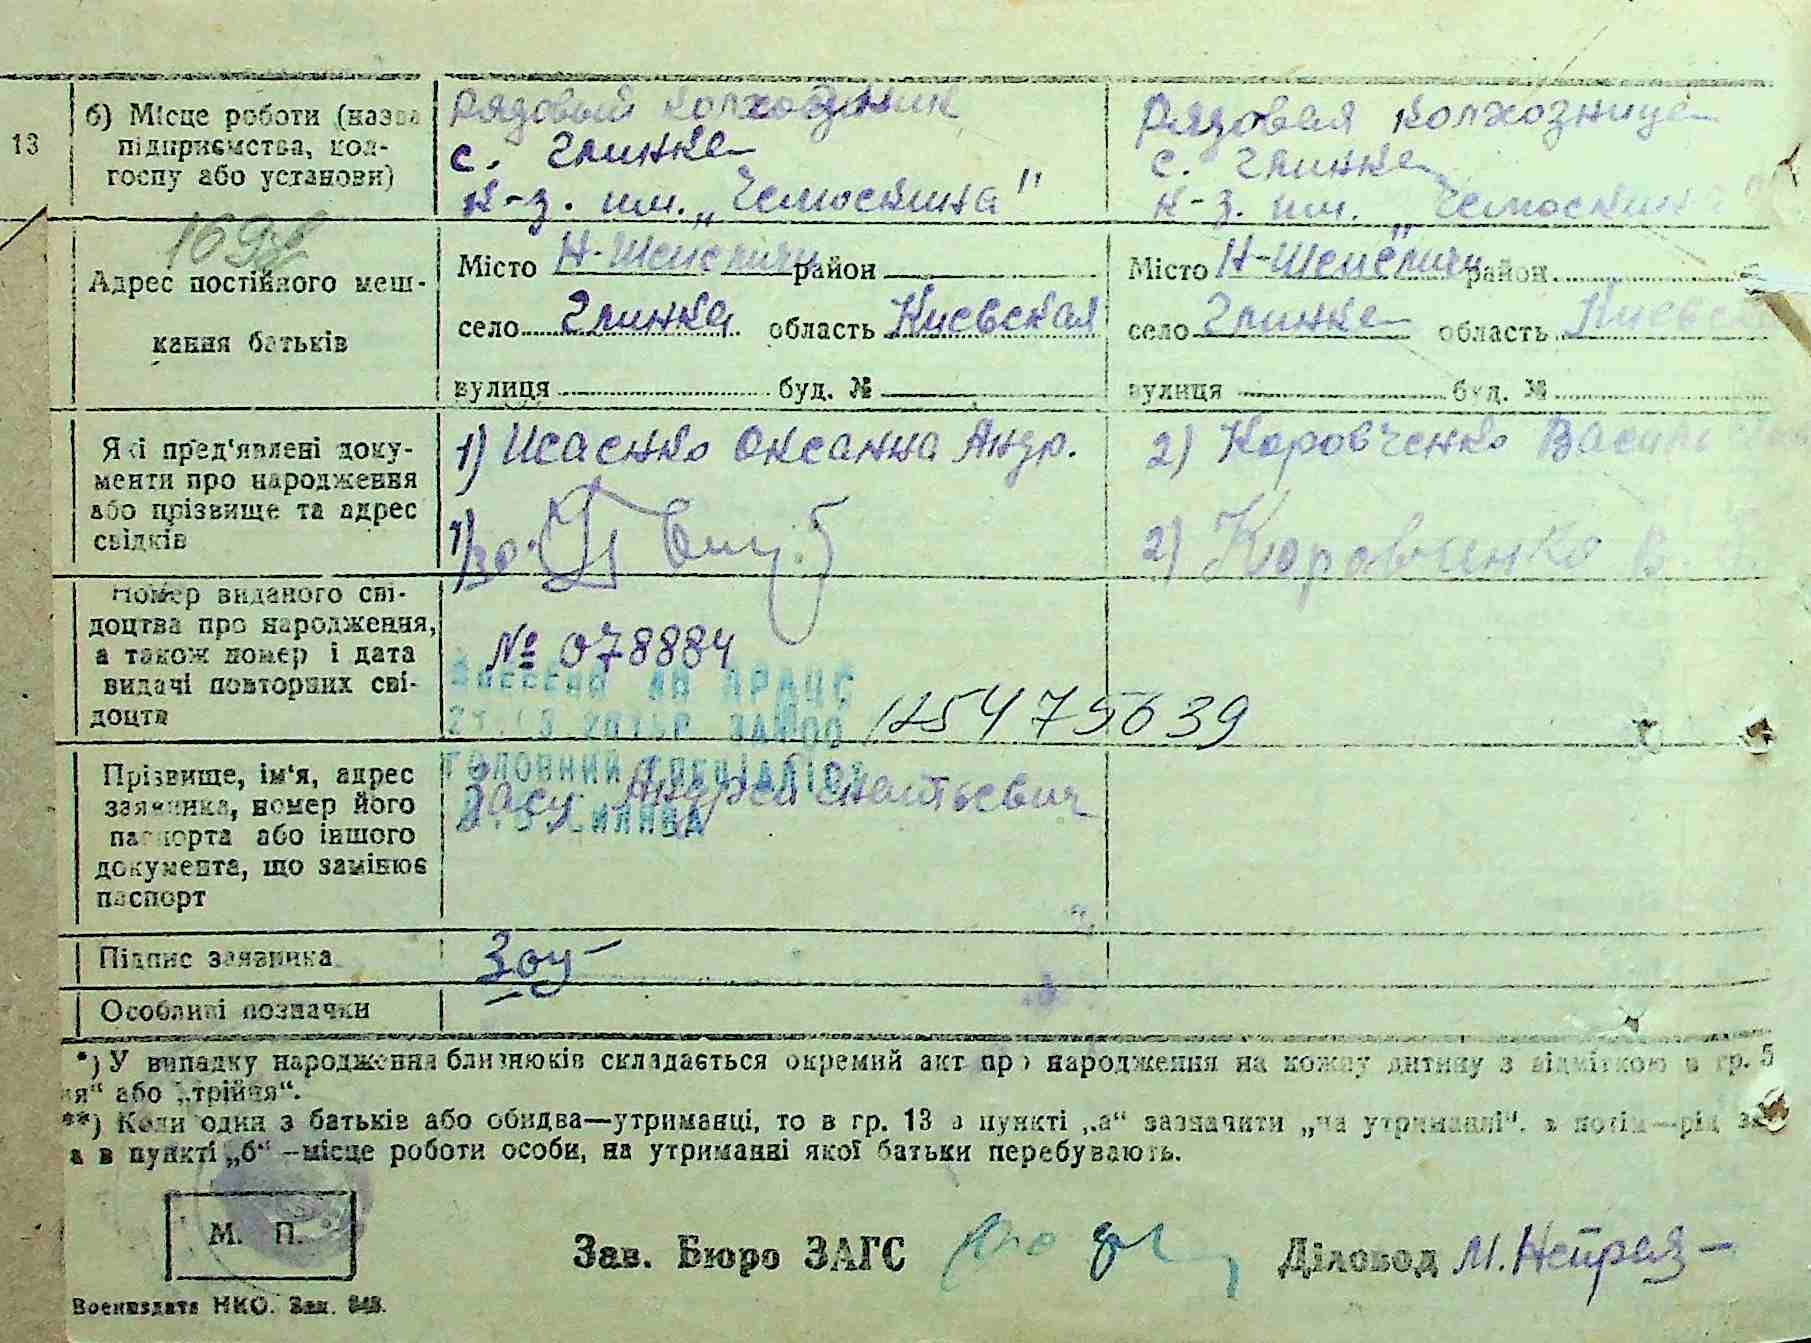 13
б) Місце роботи (назва
підприємства, кол-
госпу або установи)
Рядовый колхозник
с. Глинка
к-з. им. „Челюскина"
Рядовая колхозница
с. Глинка
к-з. им. „Челюскина"
Адрес постійного меш-
кання батьків
Місто Н-Шепеличи район
село Глинка область Киевская
вулиця буд. №
Місто Н-Шепеличи район
село Глинка область Киевская
вулиця буд. №
Які пред'явлені доку-
менти про народження
або прізвище та адрес
свідків
1) Исаенко Оксанна Андр.
1)
2) Коровченко
2) Коровченко В.
Номер виданого сві-
доцтва про народження,
а також номер і дата
видачі повторних сві-
доцтв
№ 078884
ВНЕСЕНО ДО ДРАЦС
ГОЛОВНИЙ СПЕЦІАЛІСТ
Прізвище, ім'я, адрес
заявника, номер його
паспорта або іншого
документа, що замінює
паспорт
Андрей
Підпис заявника
Особливі позначки
*) У випадку народження близнюків складається окремий акт про народження на кожну дитину з відміткою в гр. 5
ня" або „трійня".
**) Коли один з батьків або обидва—утриманці, то в гр. 13 в пункті „а" зазначити „на утриманні", а потім—рід за
а в пункті „б" —місце роботи особи, на утриманні якої батьки перебувають.
М. П.
Зав. Бюро ЗАГС
Діловод М.
Воениздата НКО. Зак.